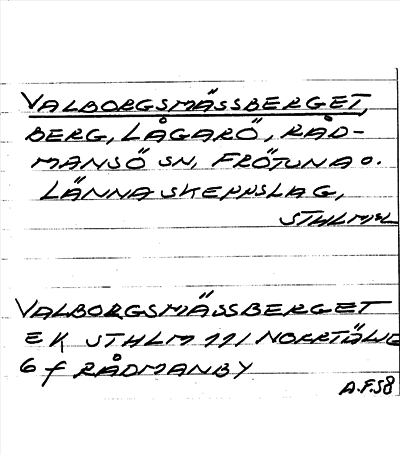 VALBORGSMÄSSBERGET,
BERG, LÅGARÖ, RÅD-
MANSÖ SN, FRÖTUNA o.
LÄNNA SKEPPSLAG,
STHLMS L
VALBORGSMÄSSBERGET
EK STHLM 111 NORRTÄLJE
6 f RÅDMANBY
A.F.58